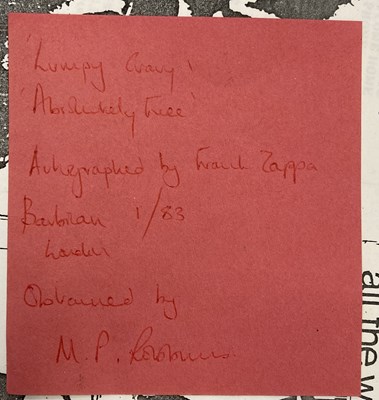 'Lumpy Gravy'
'Absolutely Free'
Autographed by Frank Zappa
Barbican 1/83
London
Obtained by
M. P.
all the w